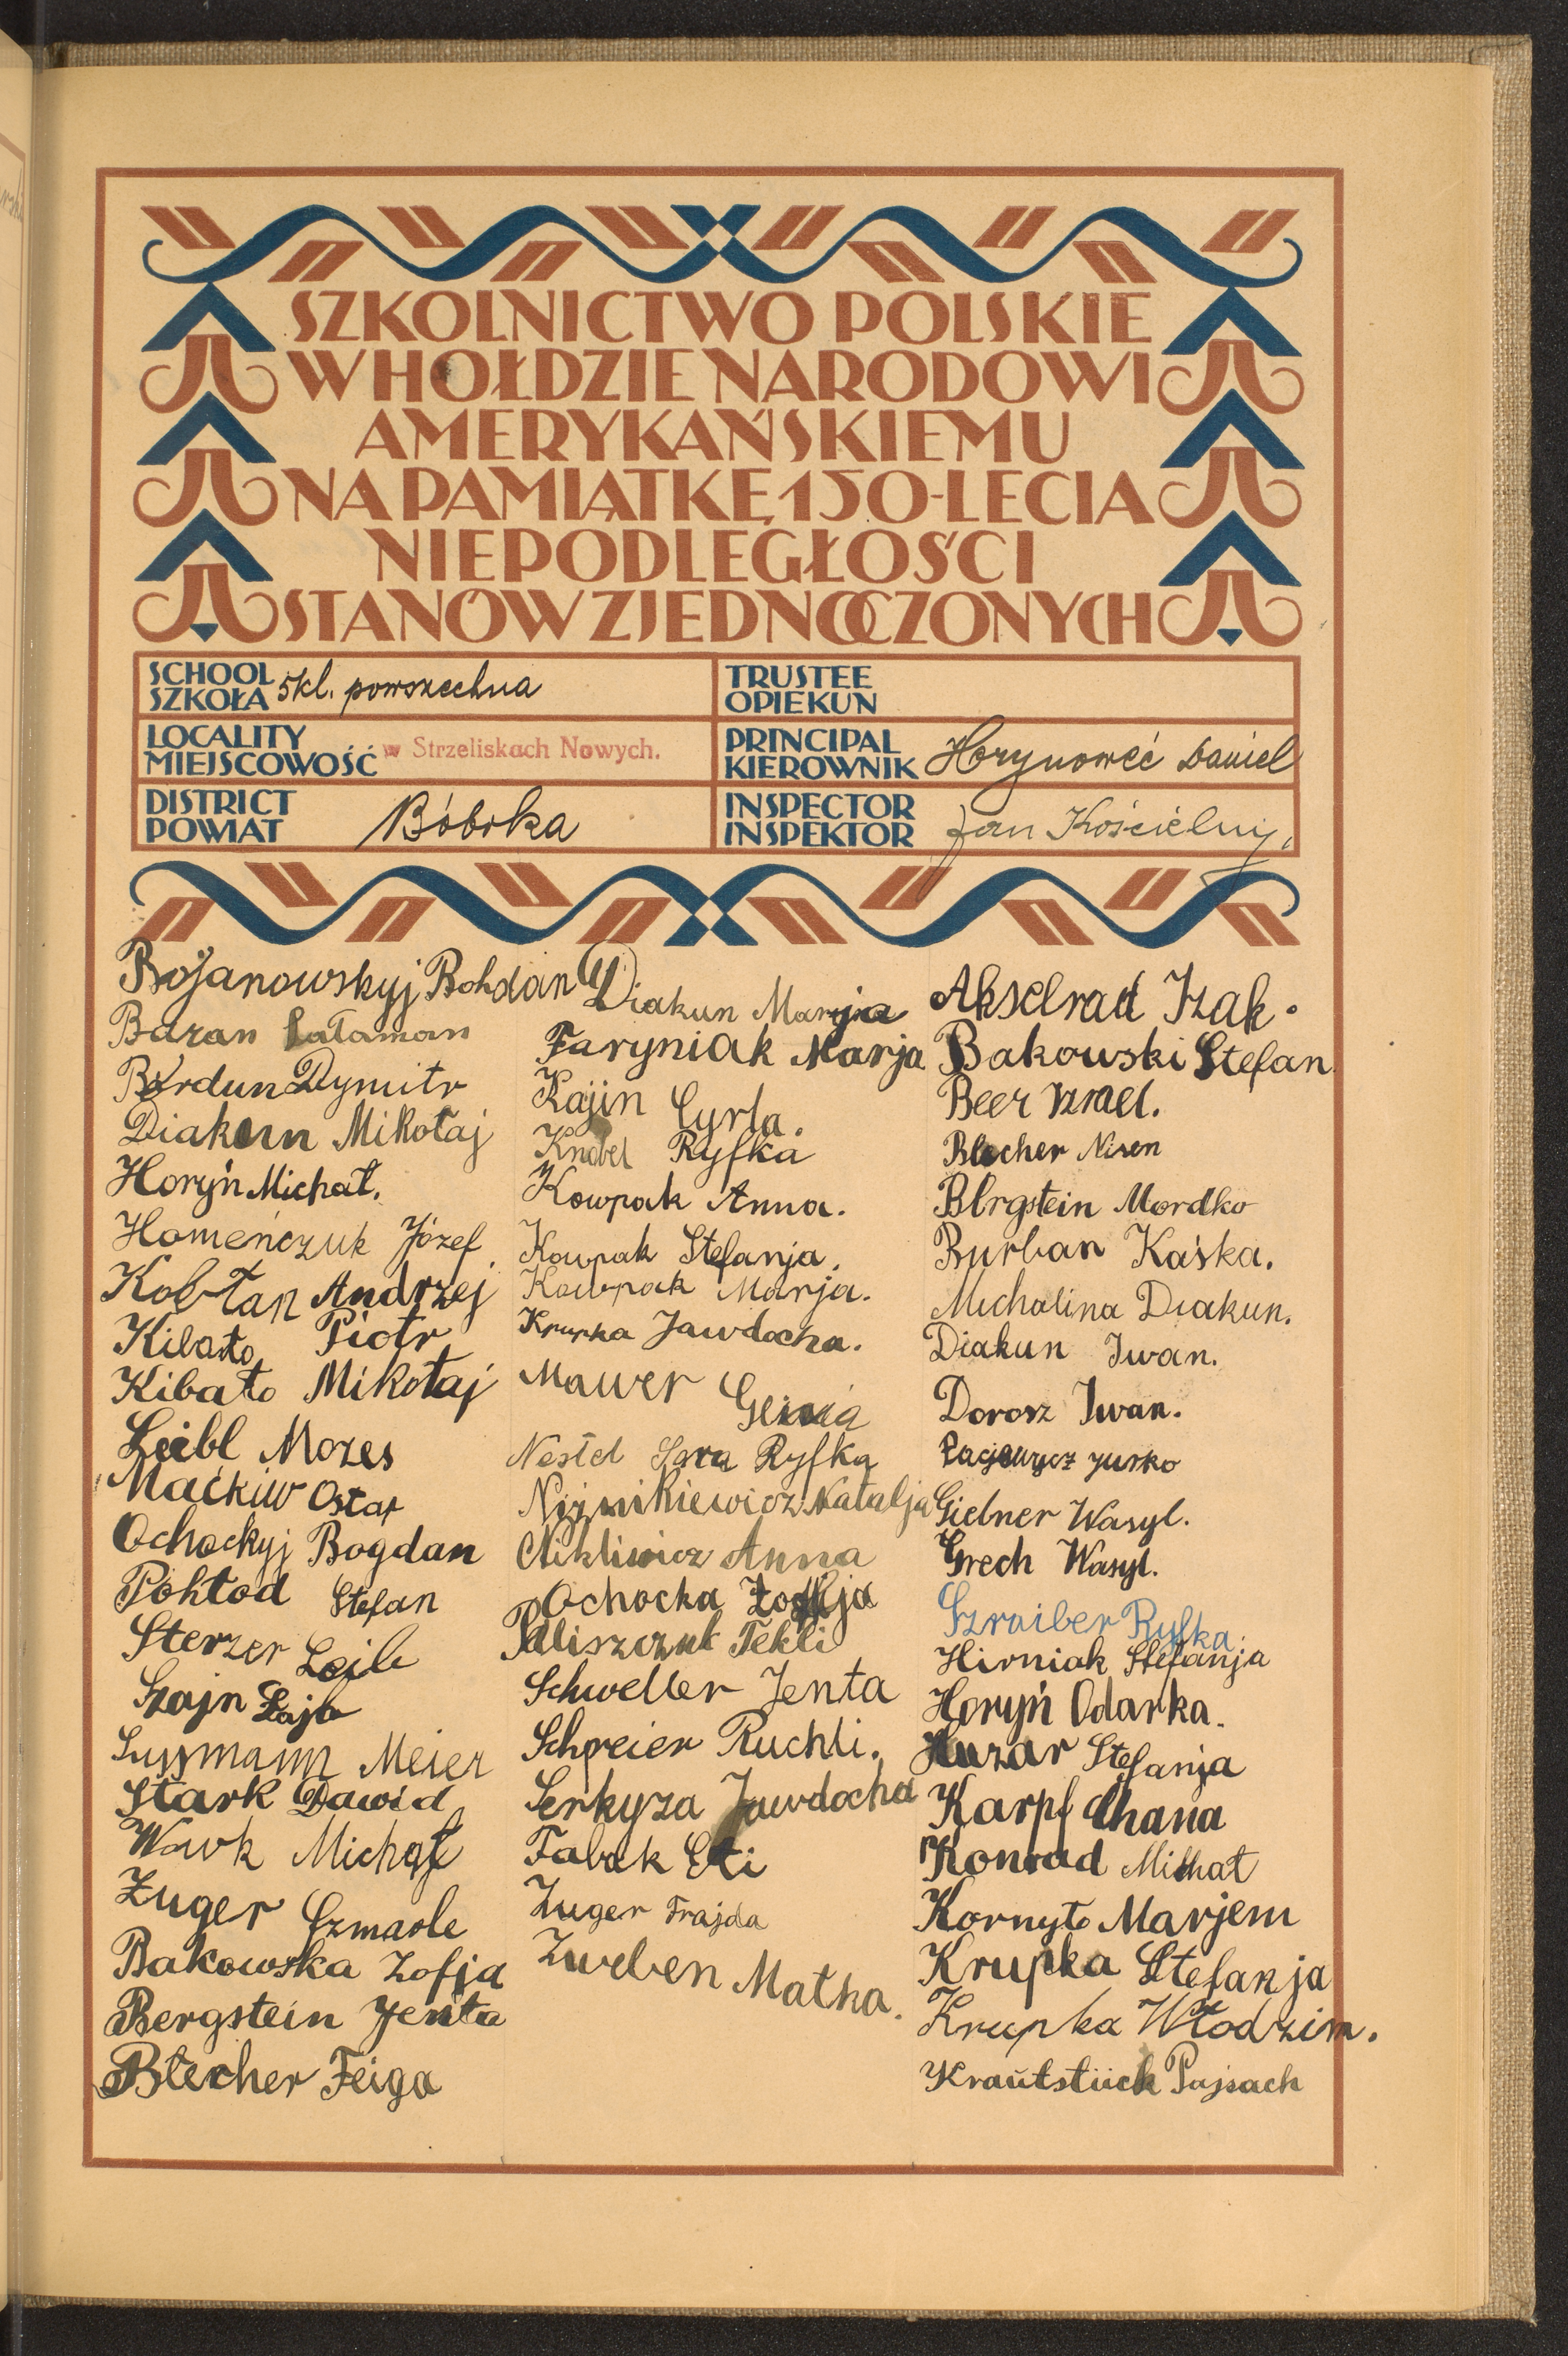 SZKOLNICTWO POLSKIE
W HOŁDZIE NARODOWI
AMERYKAŃSKIEMU
NA PAMIĄTKĘ 150-LECIA
NIEPODLEGŁOŚCI
STANÓW ZJEDNOCZONYCH
SCHOOL
SZKOŁA 5kl. powszechna
TRUSTEE
OPIEKUN
LOCALITY
MIEJSCOWOŚĆ w Strzeliskach Nowych.
PRINCIPAL
KIEROWNIK Daniel
DISTRICT
POWIAT Bóbrka
INSPECTOR
INSPEKTOR Jan Kościelny.
Bojanowskyj Bohdan
Baran
Bordun Dymitr
Diakun Mikołaj
Horyń Michał.
Homeńczuk Józef
Kobłan Andrzej
Kibało Piotr
Kibało Mikołaj
Leibl Mozes
Maćkiw Ostap
Ochockyj Bogdan
Pohłod Stefan
Sterzer Leib
Szajn Lajb
Sussmann Meier
Stark Dawid
Wowk Michał
Zuger Szmaole
Bakowska Zofja
Bergstein Jenta
Blecher Feiga
Diakun Marja
Faryniak Marja
Kajin Cyrla.
Knobel Ryfka
Kowpak Anna.
Kowpak Stefanja.
Kowpak Marja.
Krupka Jawdocha.
Mawer Genia
Nestel Sara Ryfka
Niżnikiewicz Natalja
Nikliwicz Anna
Ochocka Zofja
Paliszczuk Tekli
Schweller Jenta
Schreier Ruchli.
Serkyza Jawdocha
Tabak Eti
Zuger Frajda
Zweben Matka.
Akselrad Izak.
Bakowski Stefan
Beer Izrael.
Blecher Nisen
Bergstein Mordko
Burban Kaśka.
Michalina Diakun.
Diakun Iwan.
Dorosz Iwan.
Jurko
Gielner Wasyl.
Grech Wasyl.
Szraiber Ryfka
Hirniak Stefanja
Horyń Odarka.
Huzar Stefanja
Karpf Chana
Konrad Michał
Kornyło Marjem
Krupka Stefanja
Krupka Włodzim.
Krautstück Pajsach